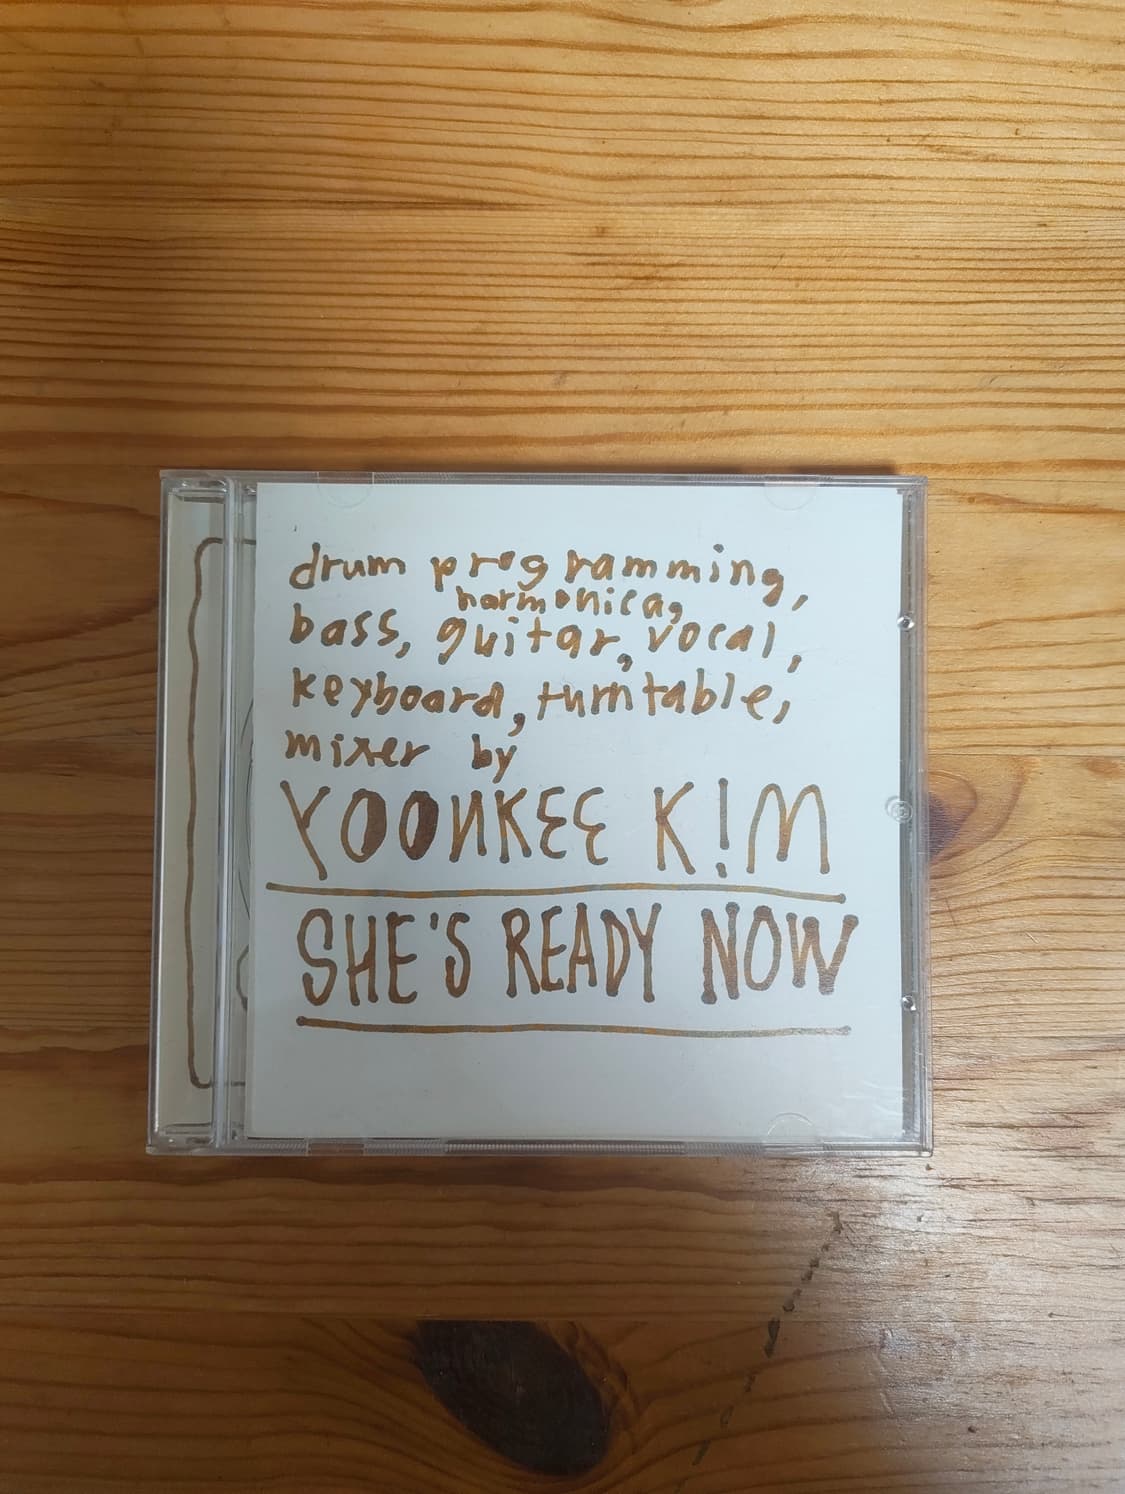 drum programming,
harmonica,
bass, guitar, vocal,
keyboard, turntable,
mixer by
YOONKEE K!M
SHE'S READY NOW